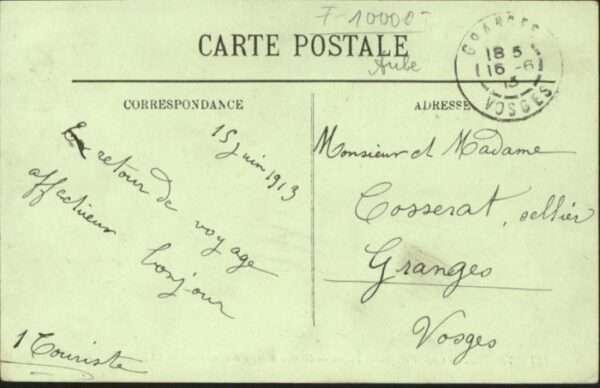 F-10000-
CARTE POSTALE
Aube
GRANGES
18 5
16 -6
13
VOSGES
CORRESPONDANCE
ADRESSE
15 juin 1913
retour de voyage
affectueux bonjour
1 Touriste
Monsieur et Madame
Cosserat, sellier
Granges
Vosges